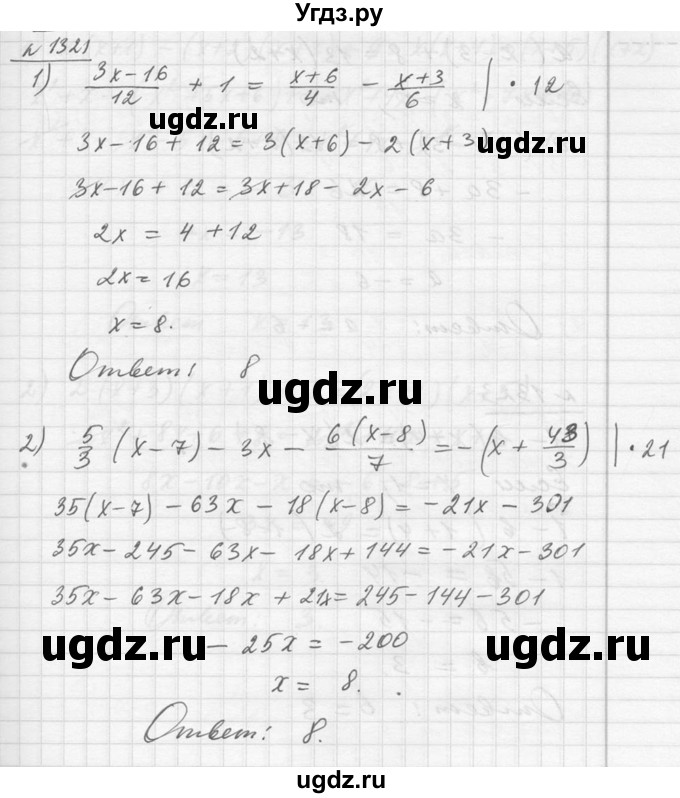 Угдз.ру
н 1321
1) (3x-16)/12 + 1 = (x+6)/4 - (x+3)/6 | · 12
ugdz.ru ugdz.ru
3x-16+12 = 3(x+6) - 2(x+3)
3x-16+12 = 3x+18-2x-6
2x = 4+12
2x = 16
x = 8.
Ответ: 8
ugdz.ru
2) 5/3 (x-7) - 3x - 6(x-8)/7 = -(x + 43/3) | · 21
35(x-7) - 63x - 18(x-8) = -21x - 301
35x - 245 - 63x - 18x + 144 = -21x - 301
35x - 63x - 18x + 21x = 245 - 144 - 301
ugdz.ru ugdz.ru
- 25x = -200
x = 8.
Ответ: 8.
ugdz.ru
ugdz.ru